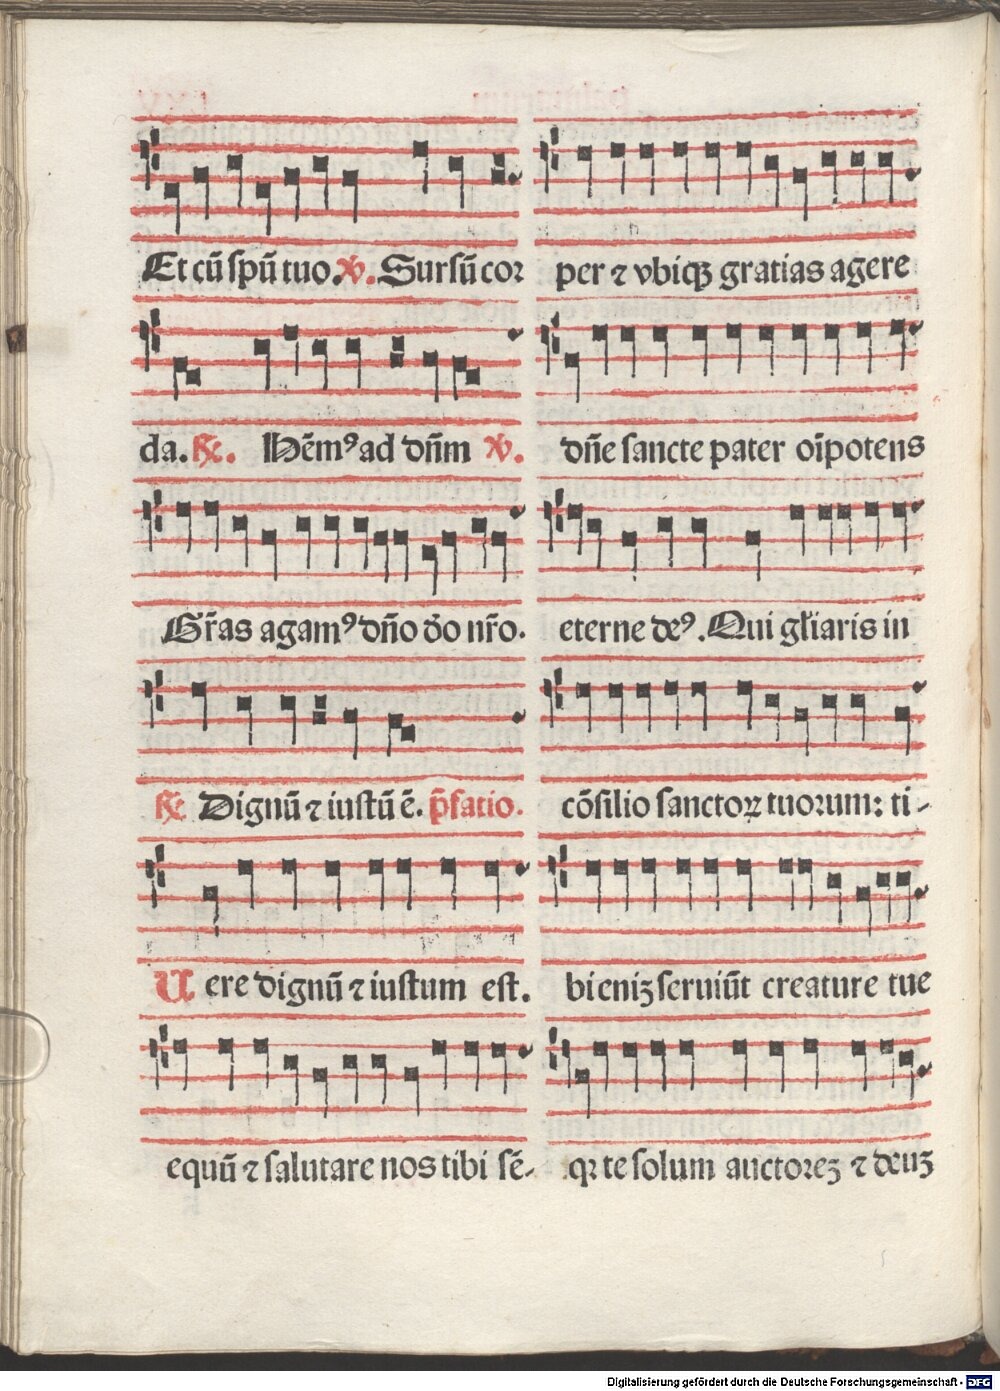 Et cū spū tuo. ℣. Sursū cor
da. ℟. Hēmꝰ ad dn̄m ℣.
Gr̄as agamꝰ dn̄o dō nr̄o.
℟ Dignū ⁊ iustū ē. p̄fatio.
Uere dignū ⁊ iustum est.
equū ⁊ salutare nos tibi sē-
per ⁊ vbiqꝫ gratias agere
dn̄e sancte pater oīpotens
eterne deꝰ. Qui gl̄iaris in
cōsilio sanctoꝝ tuorum: ti-
bi eniꝫ seruiūt creature tue
qꝛ te solum auctoreꝫ ⁊ deuꝫ
Digitalisierung gefördert durch die Deutsche Forschungsgemeinschaft - DFG